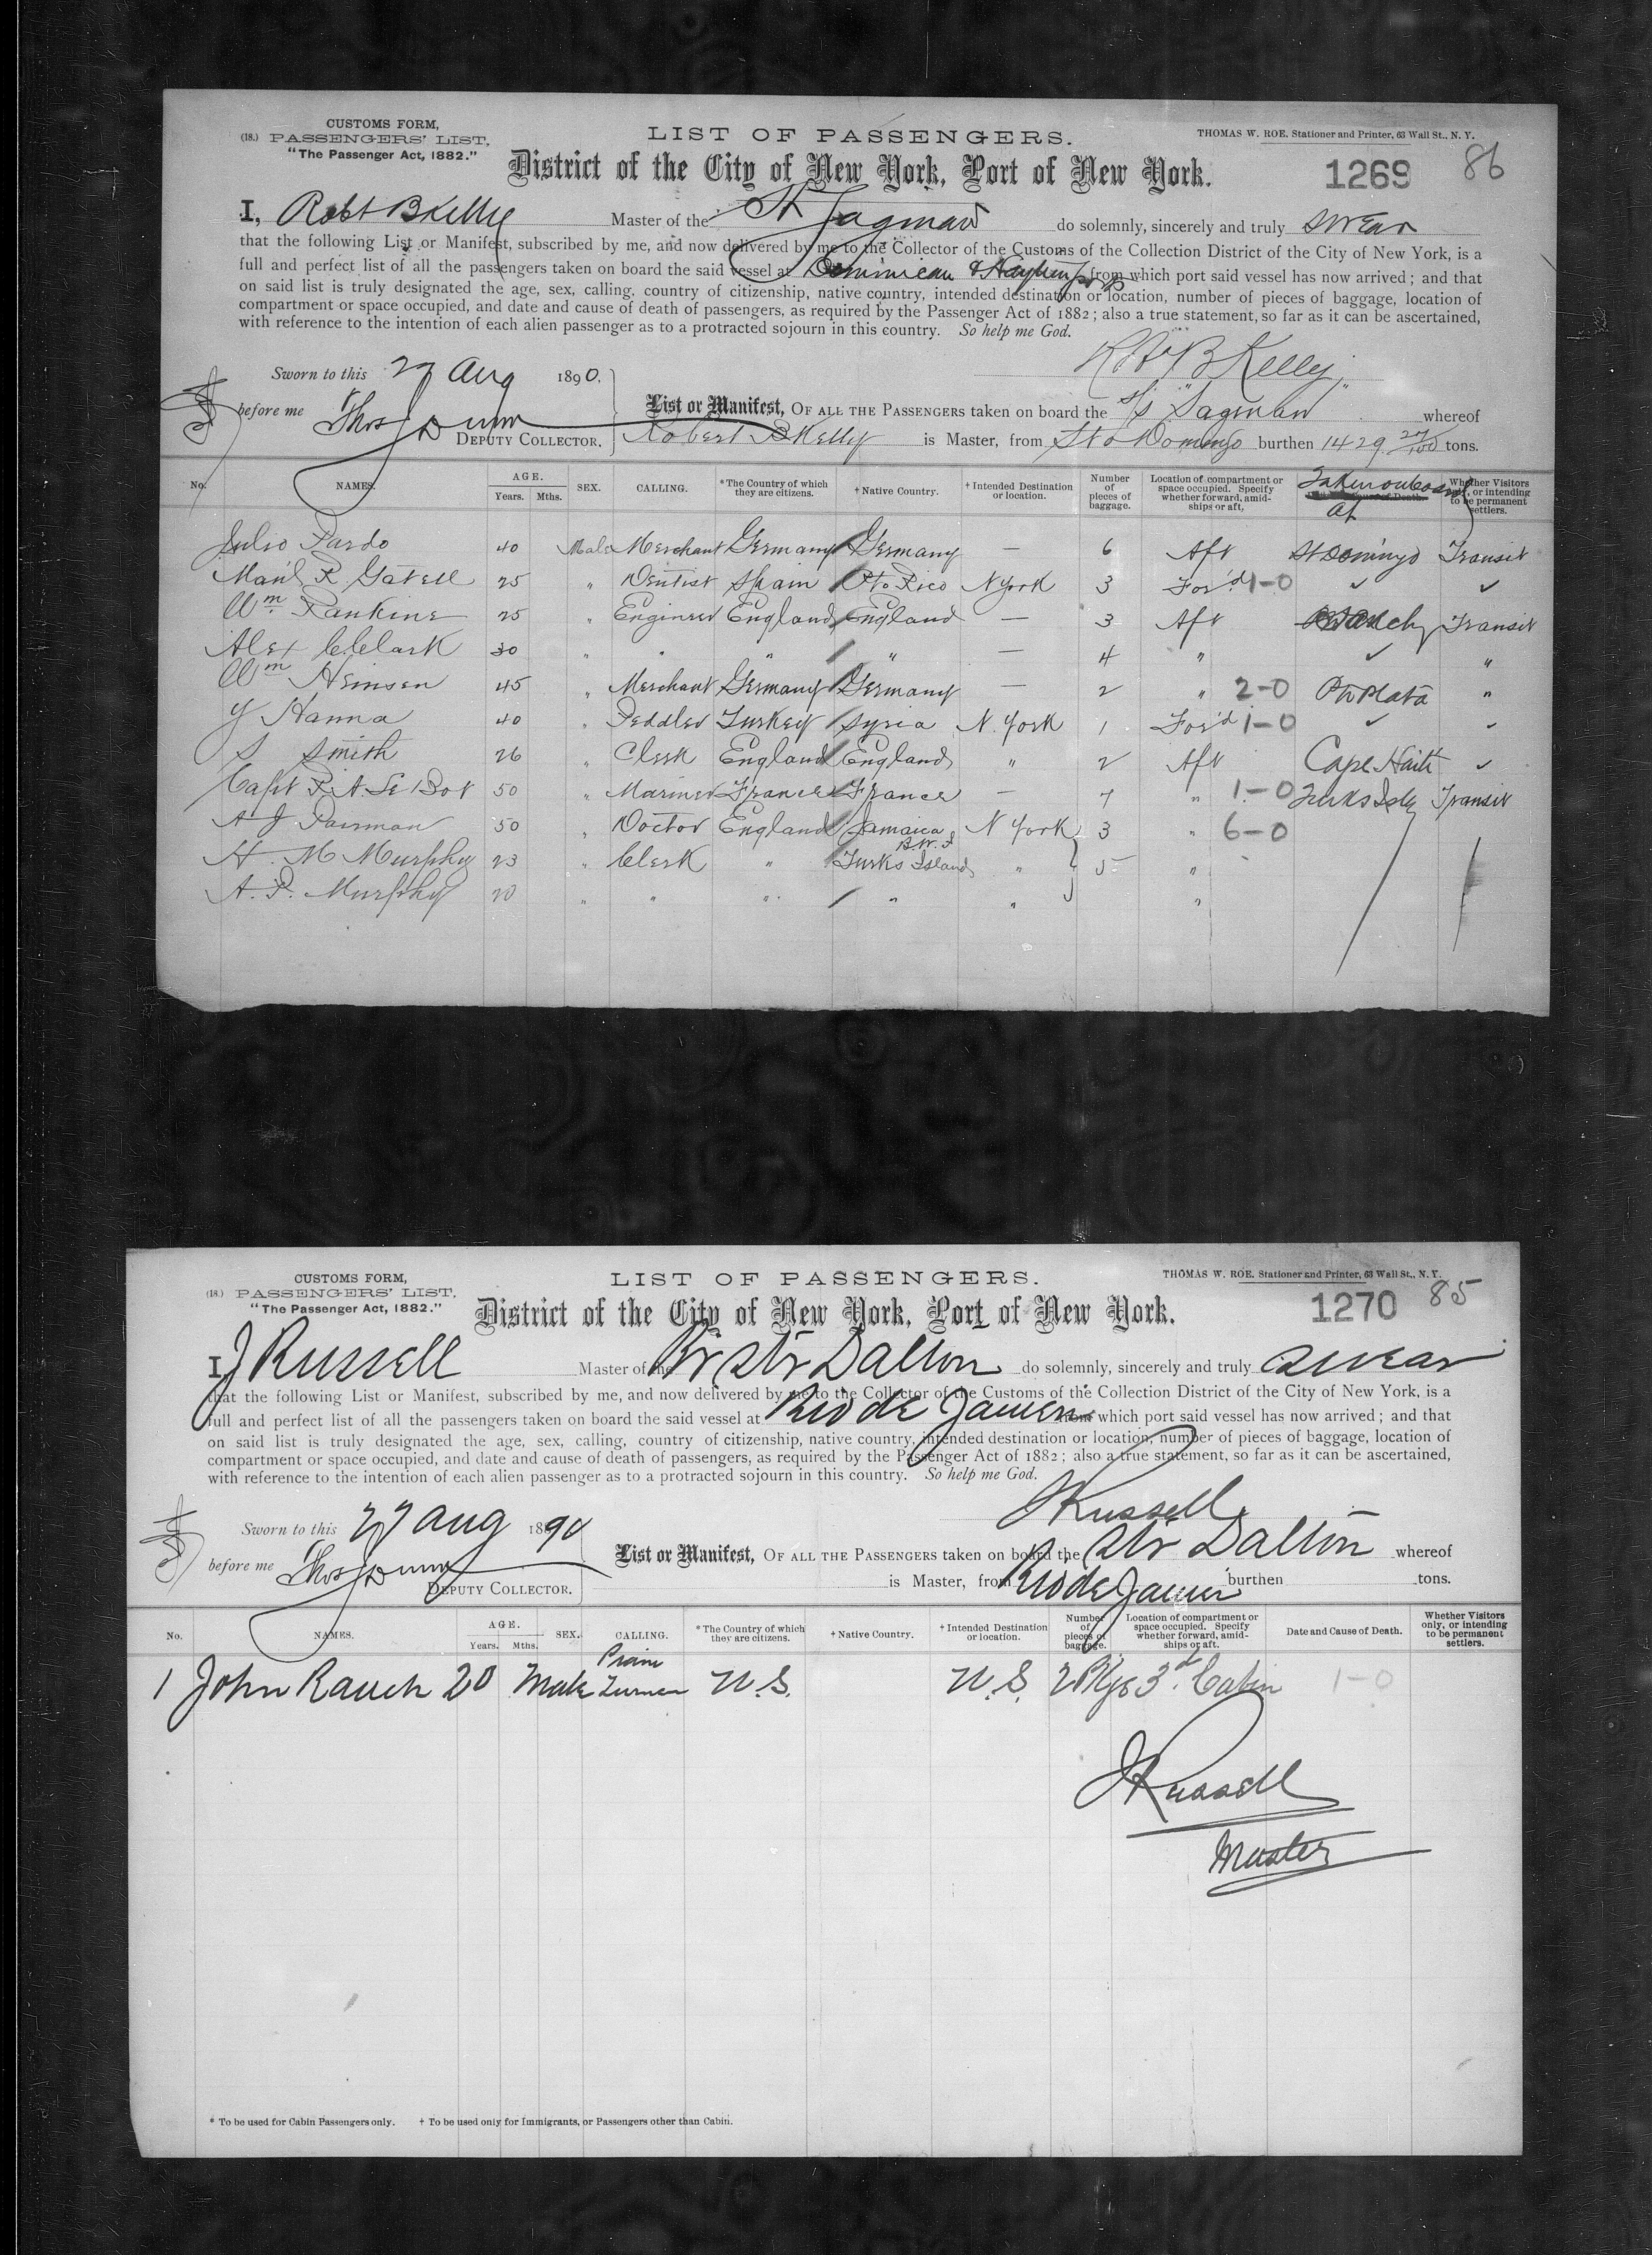 CUSTOMS FORM,
(18.) PASSENGERS' LIST.
"The Passenger Act, 1882."
LIST OF PASSENGERS.
THOMAS W. ROE, Stationer and Printer, 63 Wall St., N. Y.
District of the City of New York, Port of New York.
1269 86
I, Robt B Kelly Master of the St Saginaw do solemnly, sincerely and truly swear
that the following List or Manifest, subscribed by me, and now delivered by me to the Collector of the Customs of the Collection District of the City of New York, is a
full and perfect list of all the passengers taken on board the said vessel at Dominican & Haytien Ports from which port said vessel has now arrived; and that
on said list is truly designated the age, sex, calling, country of citizenship, native country, intended destination or location, number of pieces of baggage, location of
compartment or space occupied, and date and cause of death of passengers, as required by the Passenger Act of 1882; also a true statement, so far as it can be ascertained,
with reference to the intention of each alien passenger as to a protracted sojourn in this country. So help me God.
Robt B Kelly
Sworn to this 27 Aug 1890.
before me Thos J Dunn
DEPUTY COLLECTOR.
List or Manifest, OF ALL THE PASSENGERS taken on board the s/s "Saginaw" whereof
Robert B Kelly is Master, from Sto Domingo burthen 1429 27/100 tons.
No. NAMES. AGE. Years. Mths. SEX. CALLING. *The Country of which they are citizens. †Native Country. †Intended Destination or location. Number of pieces of baggage. Location of compartment or space occupied. Specify whether forward, amidships or aft, Taken on board at Whether Visitors or intending to be permanent settlers.
Julio Pardo 40 Male Merchant Germany Germany — 6 Aft St Domingo Transit
Man'l R. Gatell 25 " Dentist Spain Pto Rico N York 3 For'd 1-0 ✓ ✓
Wm Rankine 25 " Engineer England England — 3 Aft Transit
Alex C. Clark 30 " " " " — 4 " ✓ "
Wm Heinsen 45 " Merchant Germany Germany — 2 " 2-0 Pto Plata "
Y Hanna 40 " Peddler Turkey Syria N. York 1 For'd 1-0 ✓ ✓
S Smith 26 " Clerk England England " 2 Aft Cape Haiti ✓
Capt P. A. Le Bot 50 " Mariner France France — 7 " 1-0 Turks Isld Transit
A J Pairman 50 " Doctor England Jamaica B.W.I N York 3 " 6-0
H. M Murphy 23 " Clerk " Turks Island " 5 "
A. P. Murphy 20 " " " " " "
CUSTOMS FORM,
(18.) PASSENGERS' LIST.
"The Passenger Act, 1882."
LIST OF PASSENGERS.
THOMAS W. ROE, Stationer and Printer, 63 Wall St., N. Y.
District of the City of New York, Port of New York.
1270 85
I, J Russell Master of the Br Str Dalton do solemnly, sincerely and truly swear
that the following List or Manifest, subscribed by me, and now delivered by me to the Collector of the Customs of the Collection District of the City of New York, is a
full and perfect list of all the passengers taken on board the said vessel at Rio de Janeiro from which port said vessel has now arrived; and that
on said list is truly designated the age, sex, calling, country of citizenship, native country, intended destination or location, number of pieces of baggage, location of
compartment or space occupied, and date and cause of death of passengers, as required by the Passenger Act of 1882; also a true statement, so far as it can be ascertained,
with reference to the intention of each alien passenger as to a protracted sojourn in this country. So help me God.
J Russell
Sworn to this 27 Aug 1890
before me Thos J Dunn
DEPUTY COLLECTOR.
List or Manifest, OF ALL THE PASSENGERS taken on board the Str Dalton whereof
is Master, from Rio de Janeiro burthen tons.
No. NAMES. AGE. Years. Mths. SEX. CALLING. *The Country of which they are citizens. †Native Country. †Intended Destination or location. Number of pieces of baggage. Location of compartment or space occupied. Specify whether forward, amidships or aft. Date and Cause of Death. Whether Visitors only, or intending to be permanent settlers.
1 John Rauch 20 Male Piano Tuner U.S. U.S. 2 Pkgs 3d Cabin 1-0
J Russell
Master
* To be used for Cabin Passengers only. † To be used only for Immigrants, or Passengers other than Cabin.